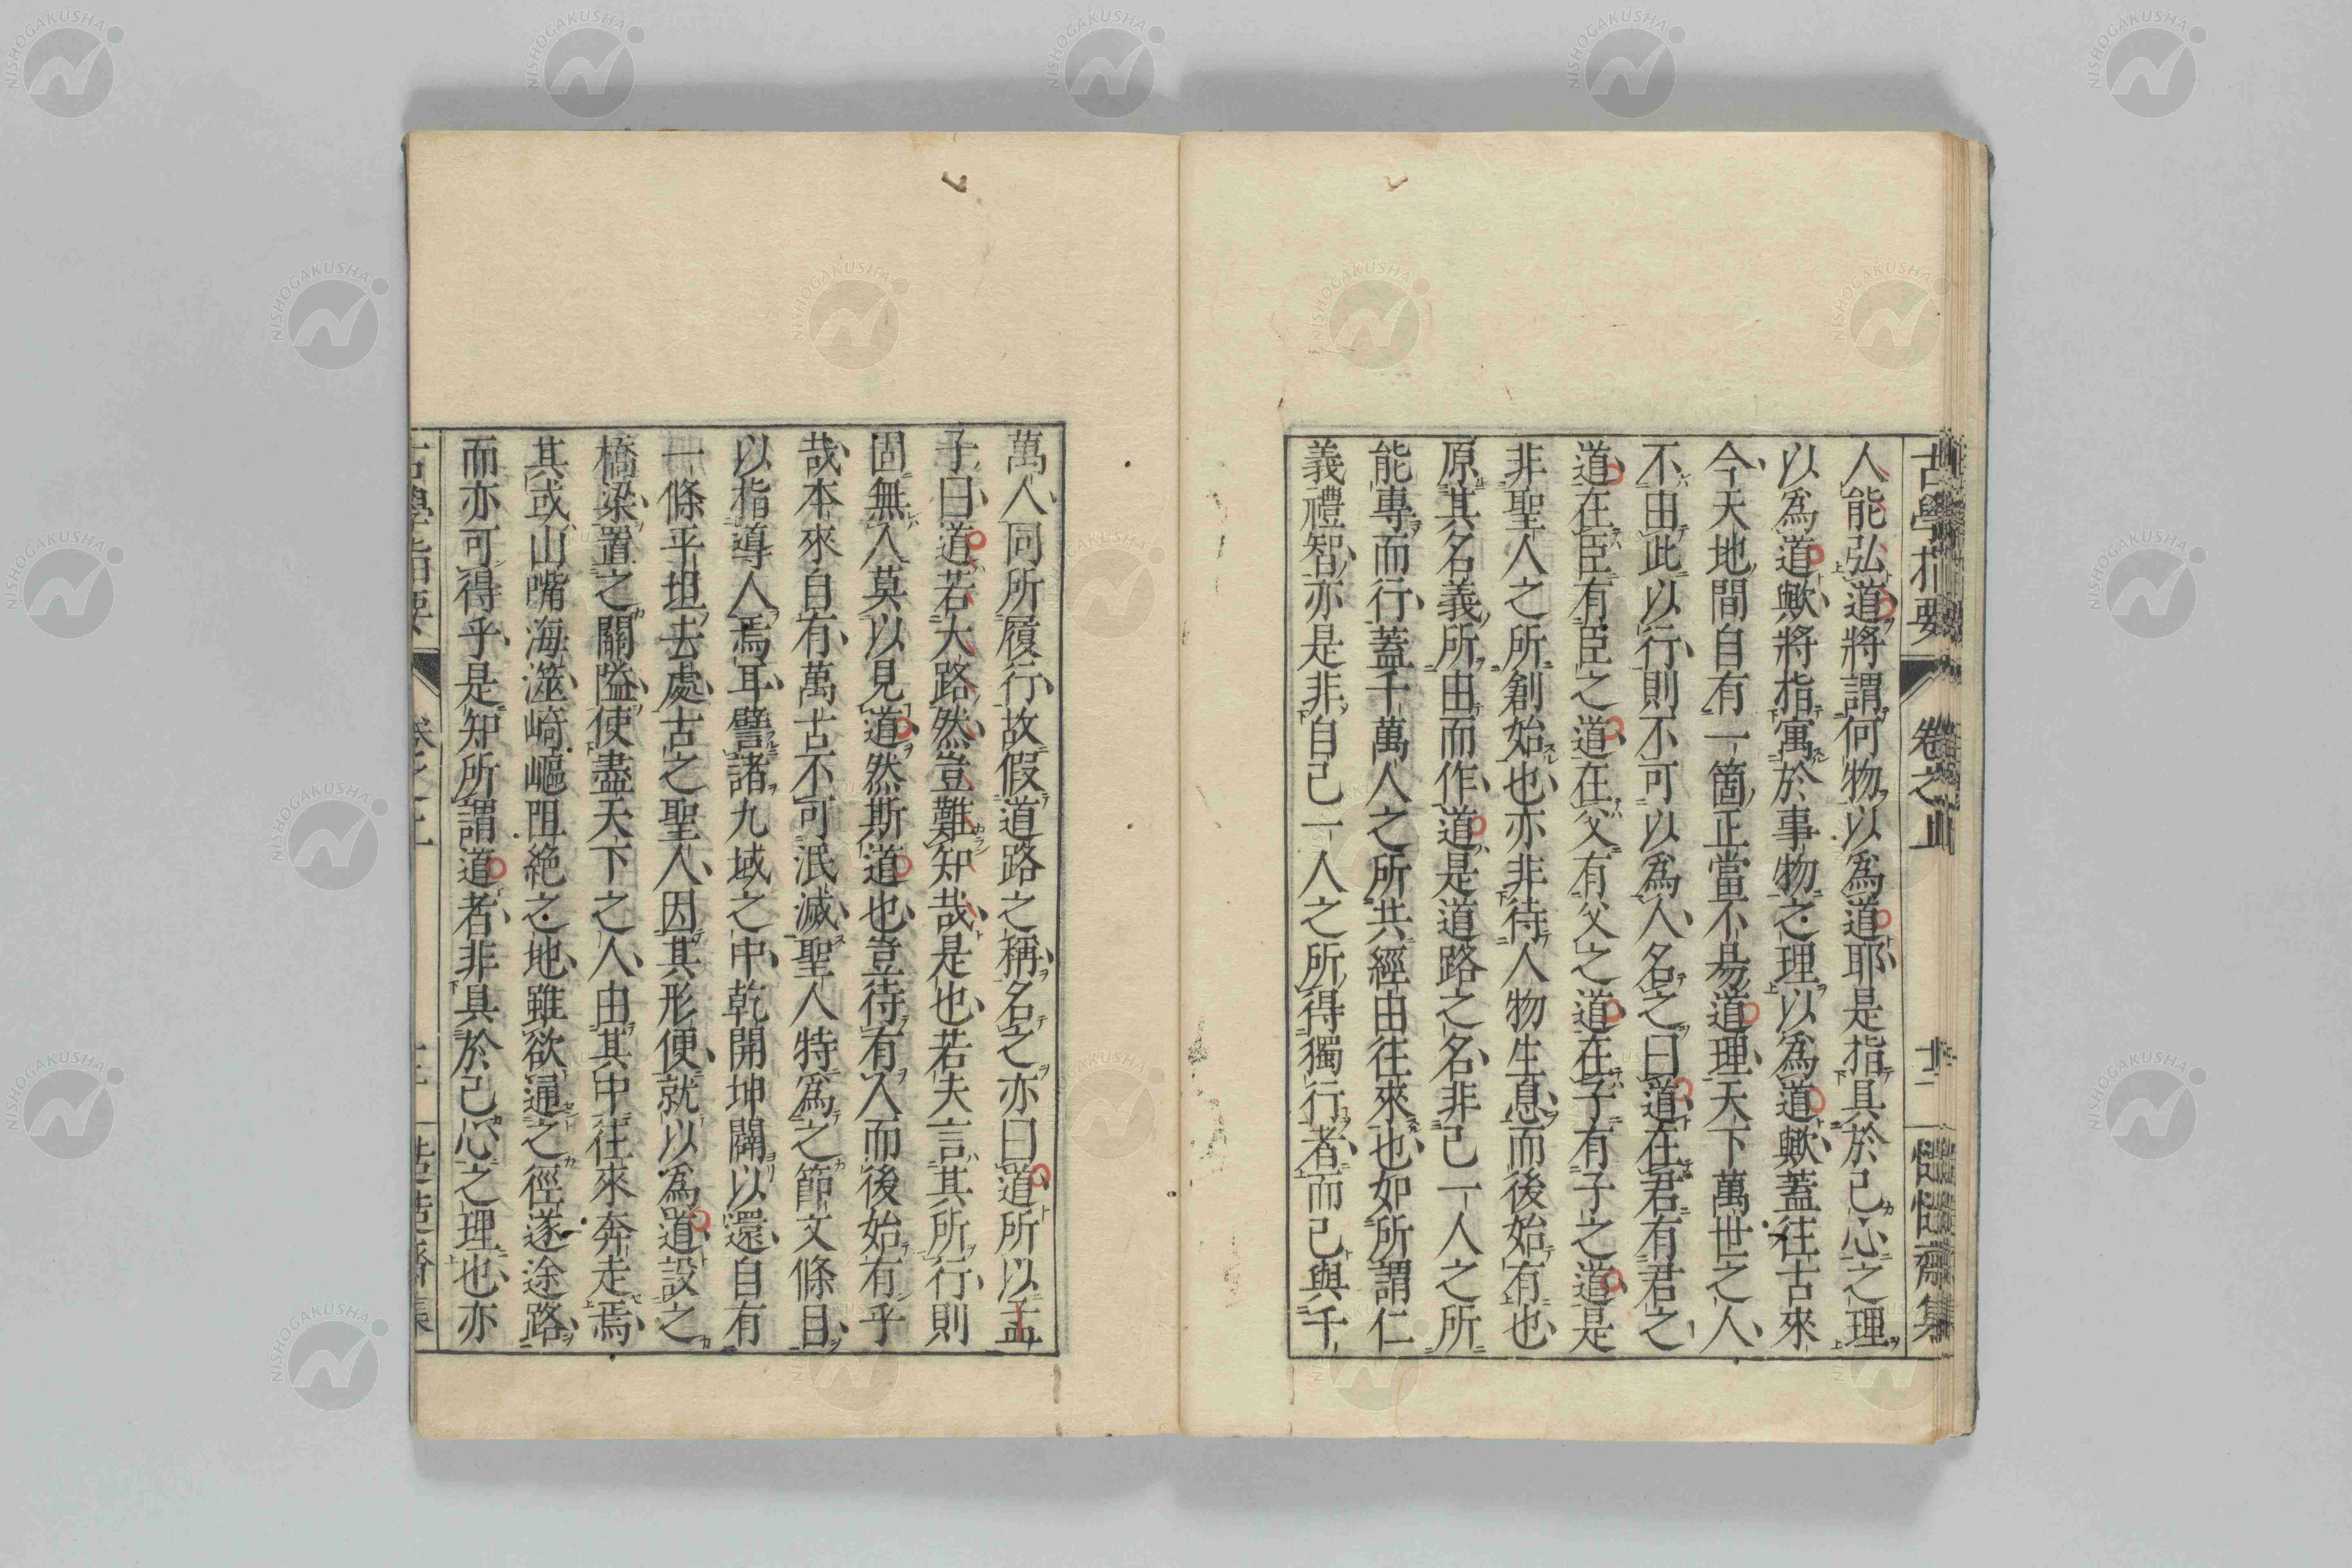 古學指要
卷之上
十二
人能弘道將謂何物以爲道耶是指具於己心之理
以爲道歟將指寓於事物之理以爲道歟蓋往古來
今天地間自有一箇正當不易道理天下萬世之人
不由此以行則不可以爲人名之曰道在君有君之
道在臣有臣之道在父有父之道在子有子之道是
非聖人之所創始也亦非待人物生息而後始有也
原其名義所由而作道是道路之名非己一人之所
能專而行蓋千萬人之所共經由往來也如所謂仁
義禮智亦是非自己一人之所得獨行者而已與千
萬人同所履行故假道路之稱名之亦曰道所以孟
子曰道若大路然豈難知哉是也若夫言其所行則
固無人莫以見道然斯道也豈待有人而後始有乎
哉本來自有萬古不可泯滅聖人特爲之節文條目
以指導人焉耳譬諸九域之中乾開坤闢以還自有
一條平坦去處古之聖人因其形便就以爲道設之
橋梁置之關隘使盡天下之人由其中往來奔走焉
其或山嘴海澨崎嶇阻絕之地雖欲通之徑遂途路
而亦可得乎是知所謂道者非具於己心之理也亦
NISHOGAKUSHA